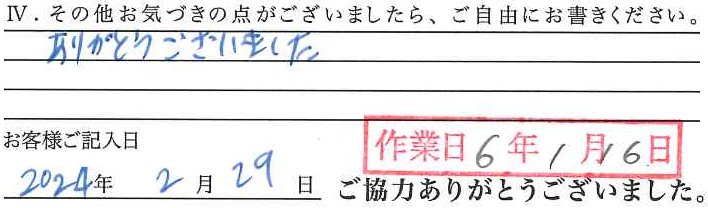 Ⅳ．その他お気づきの点がございましたら、ご自由にお書きください。
ありがとうございました
お客様ご記入日
作業日6年1月16日
2024年2月29日
ご協力ありがとうございました。